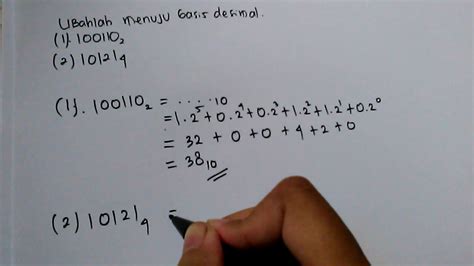 Ubahlah menuju basis desimal.
(1). 100110₂
(2) 10121₄
(1). 100110₂ = ......10
= 1.2⁵+0.2⁴+0.2³+1.2²+1.2¹+0.2⁰
= 32 + 0 + 0 + 4 + 2 + 0
= 38₁₀
(2) 10121₄ =